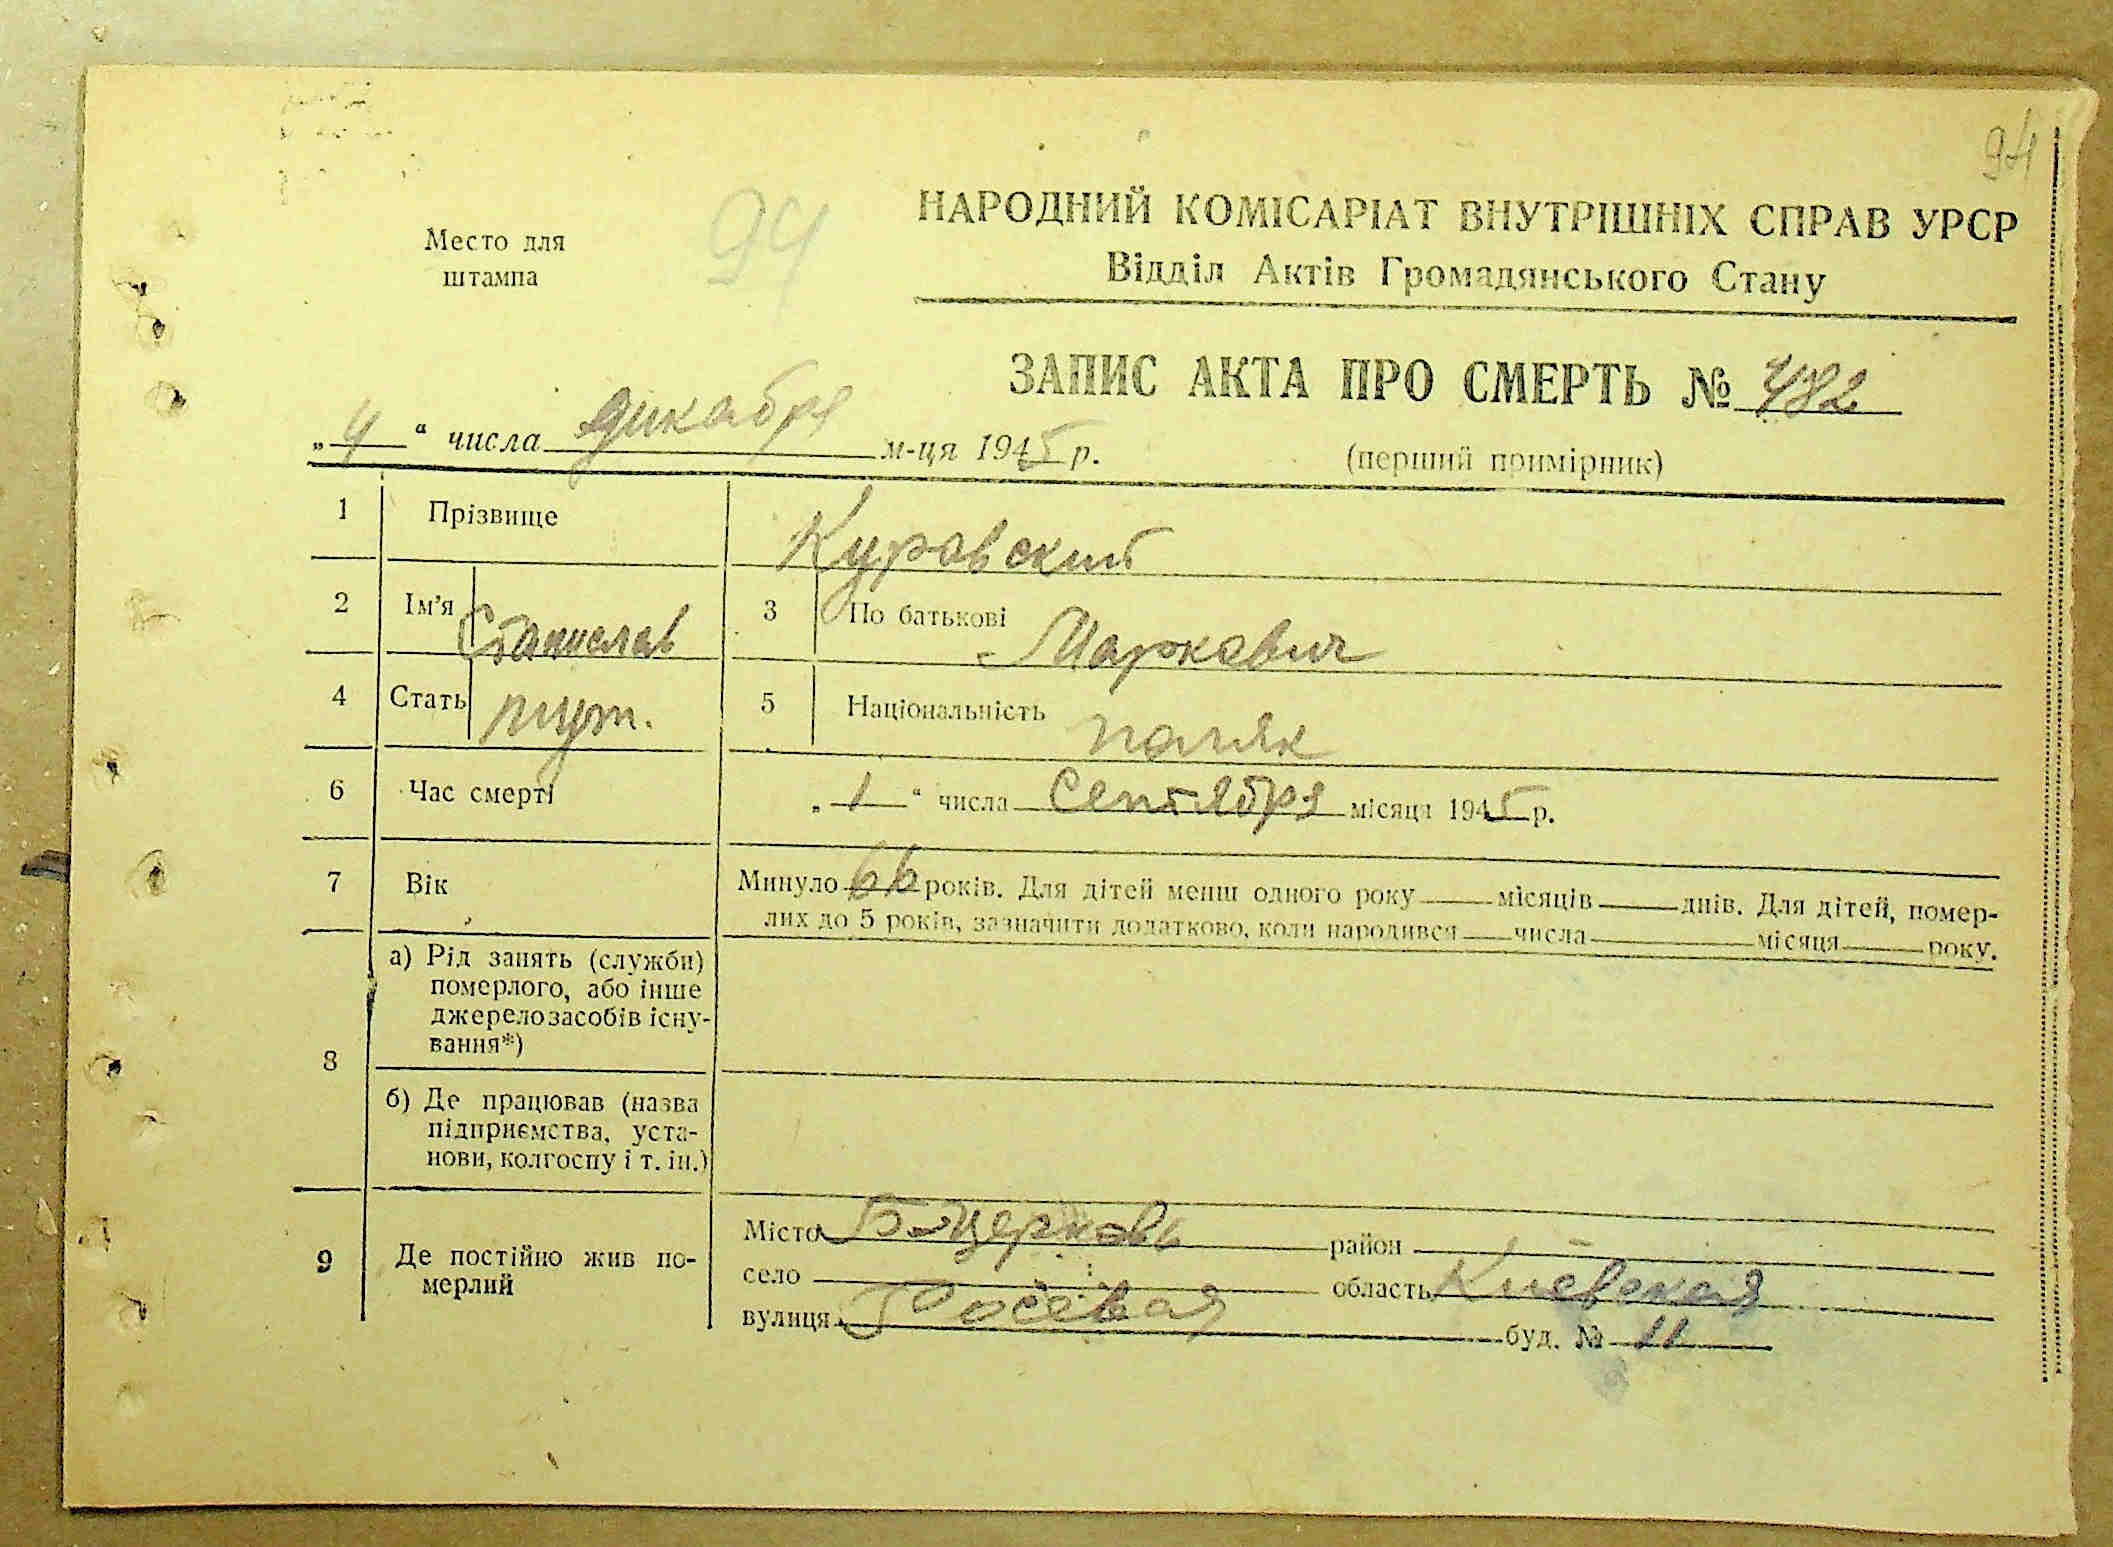 94
НАРОДНИЙ КОМІСАРІАТ ВНУТРІШНІХ СПРАВ УРСР
Відділ Актів Громадянського Стану
Место для
штампа
94
ЗАПИС АКТА ПРО СМЕРТЬ № 482
„4“ числа декабря м-ця 1945 р.
(перший примірник)
1 Прізвище Куровский
2 Ім'я Станислав 3 По батькові Маркович
4 Стать муж. 5 Національність поляк
6 Час смерті „1“ числа Сентября місяця 1945 р.
7 Вік Минуло 66 років. Для дітей менш одного року місяців днів. Для дітей, помер-
лих до 5 років, зазначити додатково, коли народився числа місяця року.
8 а) Рід занять (служби)
померлого, або інше
джерело засобів існу-
вання*)
б) Де працював (назва
підприємства, уста-
нови, колгоспу і т. ін.)
9 Де постійно жив по-
мерлий
Місто Б-Церковь район –
село область Киевская
вулиця Росевая буд. № 11